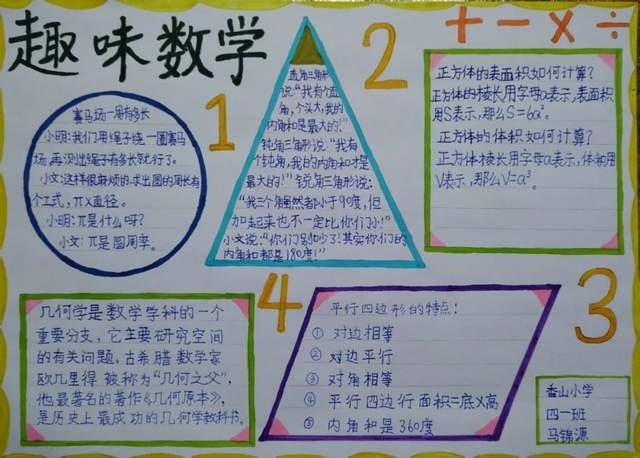 趣味数学
1
赛马场一周有多长
小明:我们用绳子绕一圈赛马
场,再测出绳子有多长就行了。
小文:这样很麻烦的,求出圆的周长有
个公式,π×直径。
小明:π是什么呀?
小文:π是圆周率。
直角三角形
说:“我有个直
角,个头大,我的
内角和是最大的!”
钝角三角形说:“我有
个钝角,我的内角和才是
最大的!”锐角三角形说:
“我三个角虽然都小于90度,但
加起来也不一定比你们小!”
小文说:“你们别吵了!其实你们的
内角和都是180度!”
2
+-×÷
正方体的表面积如何计算?
正方体的棱长用字母a表示,表面积
用S表示,那么S=6a²。
正方体的体积如何计算?
正方体棱长用字母a表示,体积用
V表示,那么V=a³。
几何学是数学学科的一个
重要分支,它主要研究空间
的有关问题,古希腊数学家
欧几里得被称为“几何之父”,
他最著名的著作《几何原本》,
是历史上最成功的几何学教科书。
4
平行四边形的特点:
① 对边相等
② 对边平行
③ 对角相等
④ 平行四边行面积=底×高
⑤ 内角和是360度
3
香山小学
四一班
马锦源